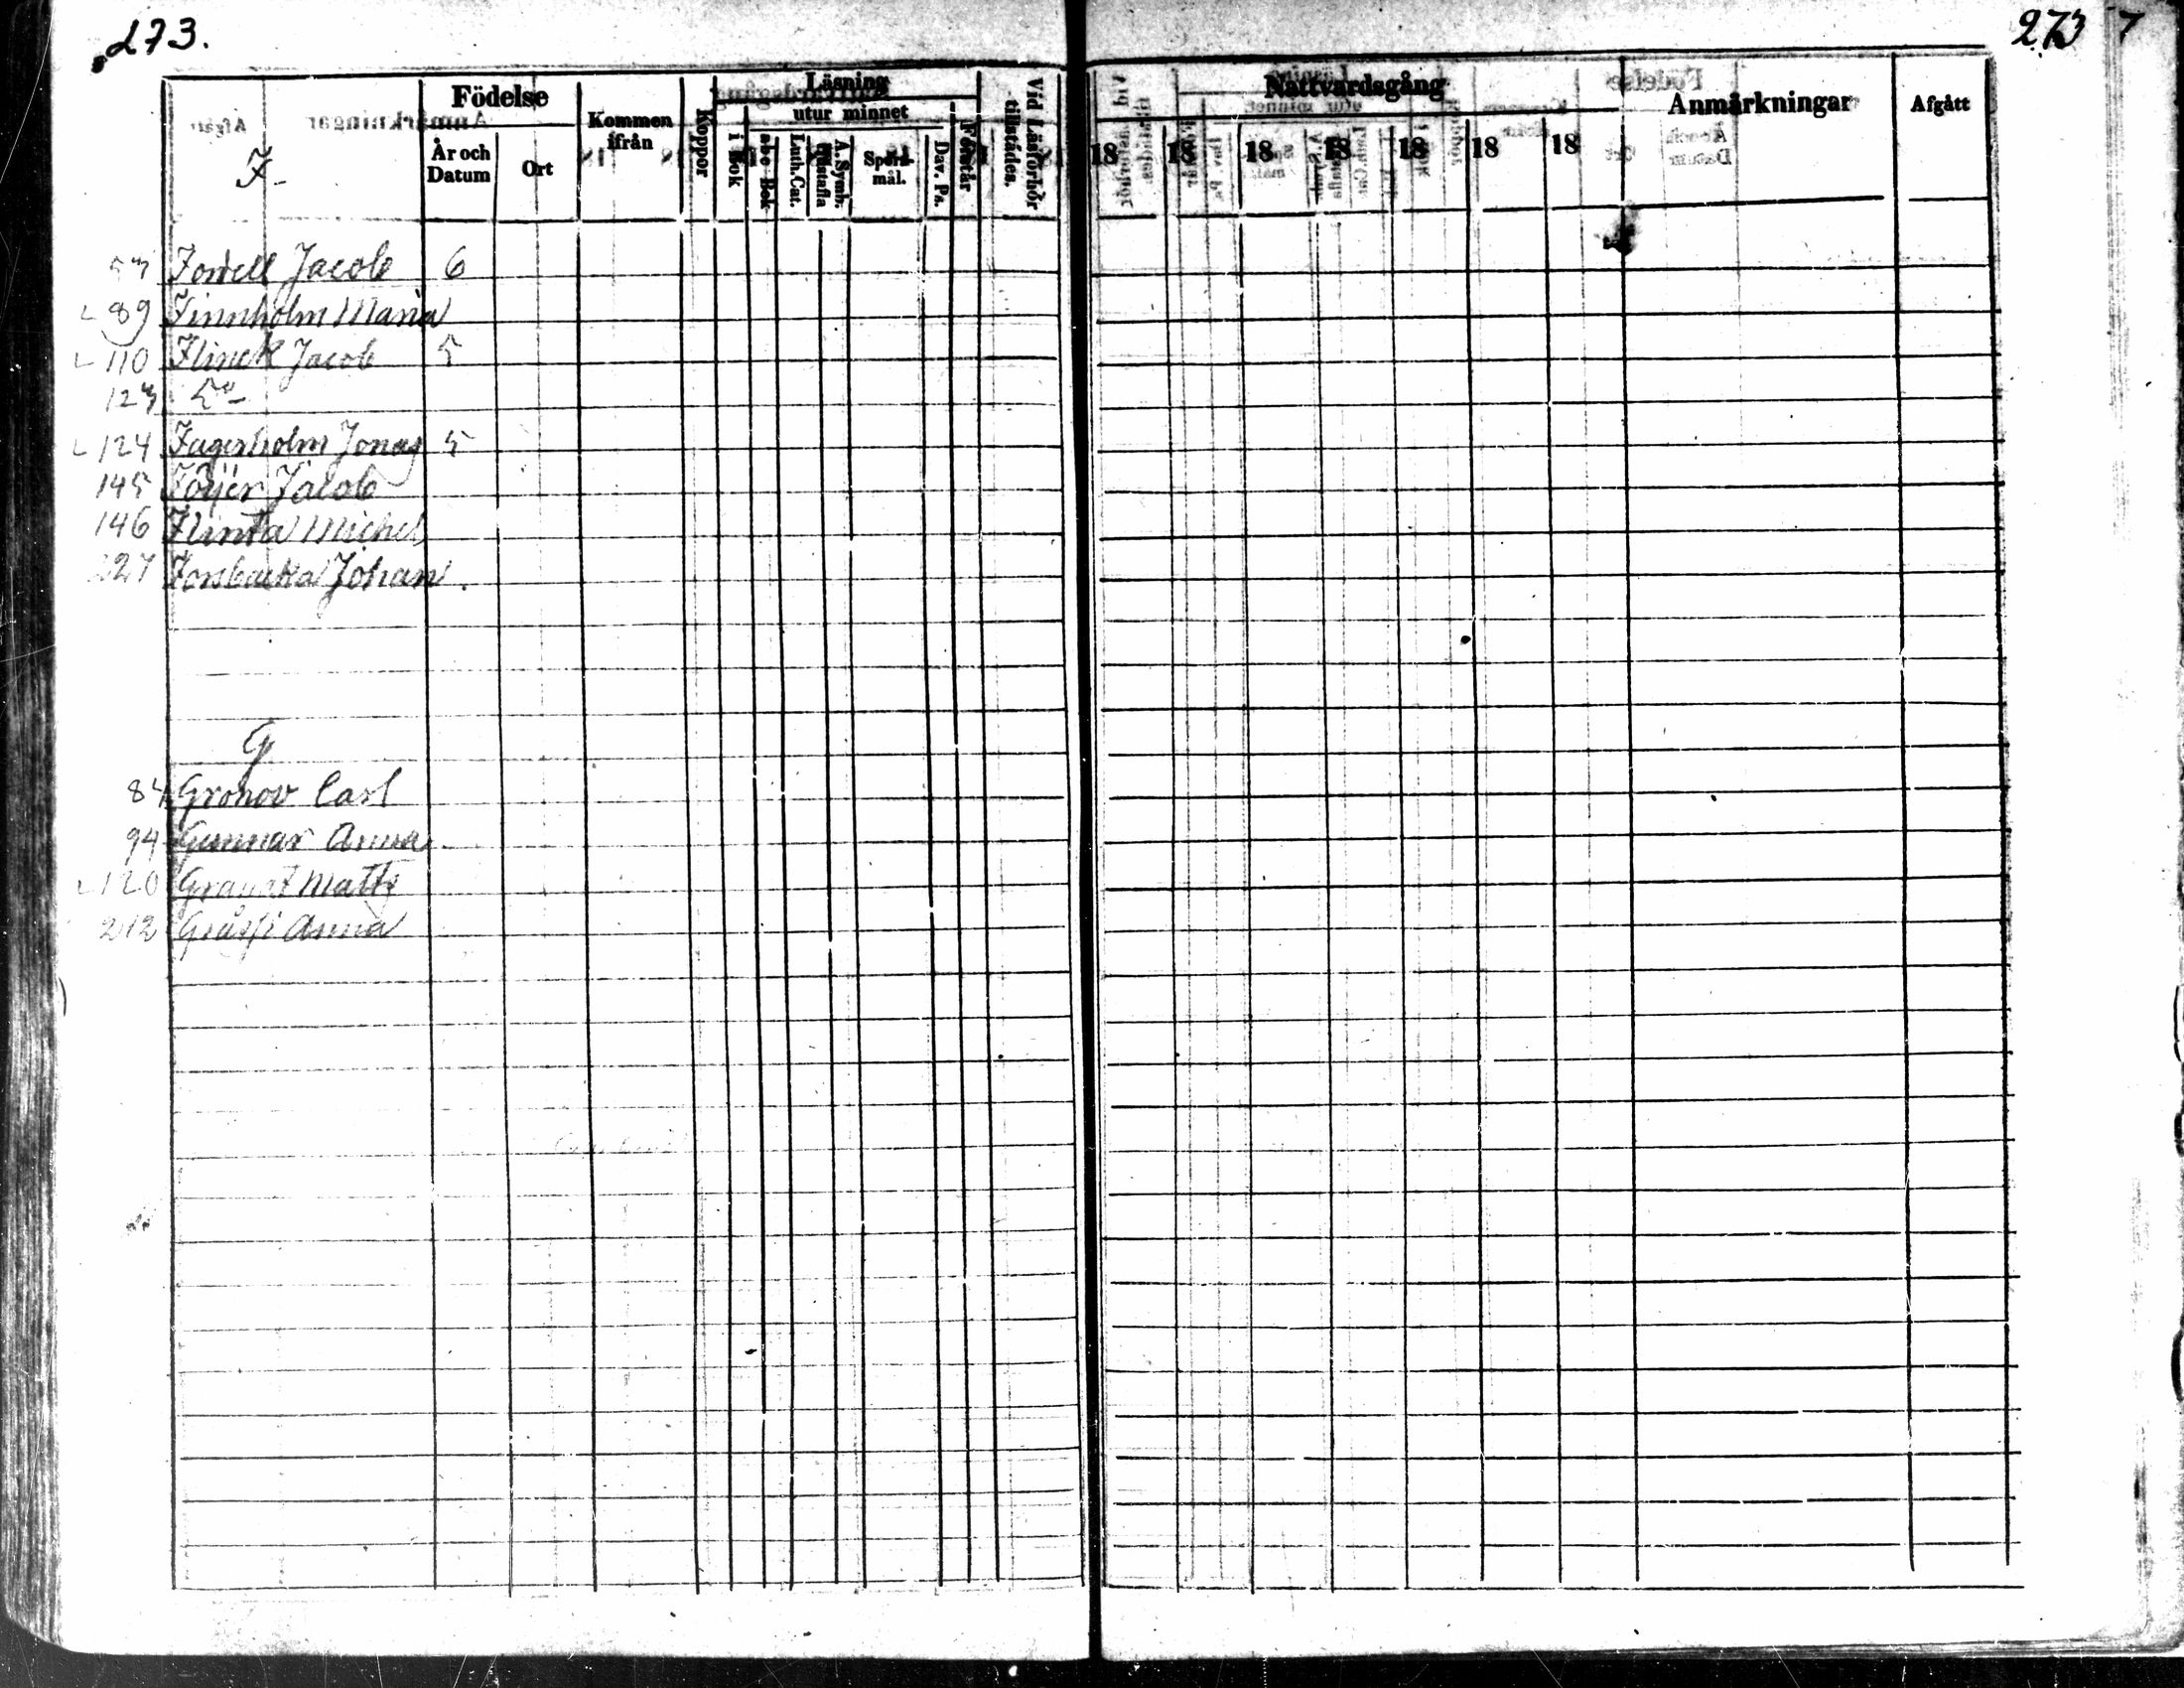 273.
273 7
Födelse
År och Datum
Ort
Kommen ifrån
Koppor
Läsning
i Bok
utur minnet
abc Bok
Luth. Cat.
A. Symb. Hustafla
Spörsmål.
Dav. Ps.
Förstår
Vid Läsförhör tillstädes.
Nattvardsgång
18 18 18 18 18 18 18
Anmärkningar
Afgått
F-
Forsell Jacob 6
L 89 Finnholm Maria
L 110 Flinck Jacob 5
123 Do-
L 124 Fagerholm Jonas 5
145 Föyer Jacob
146 Flinta Michel
227 Forsbacka Johan.
G
84 Gronov Carl
94 Gunnar Anna
L 120 Granat Matts
212 Anna